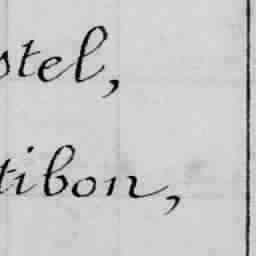 stel,
tibon,